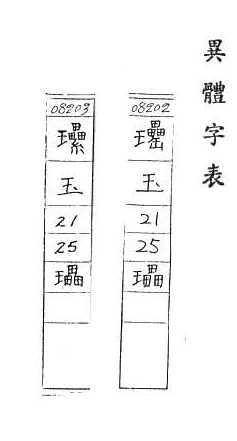 異體字表
08202
玉
21
25
瓃
08203
玉
21
25
瓃